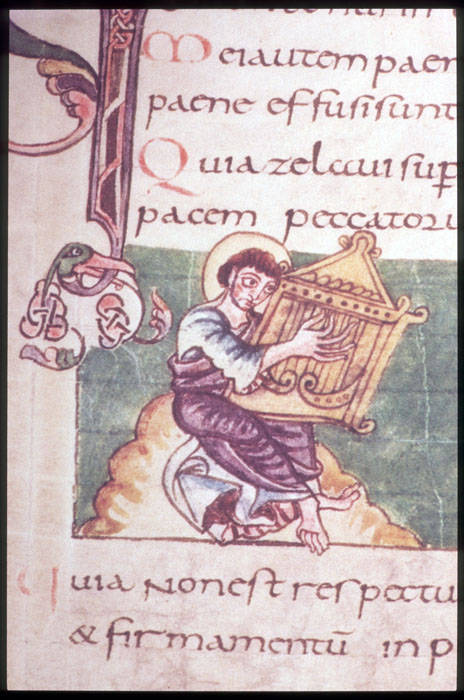 Mei autem paen
paene effusi sunt
Quia zelaui sup
pacem peccatoru
Quia non est respectu
& firmamentū in p